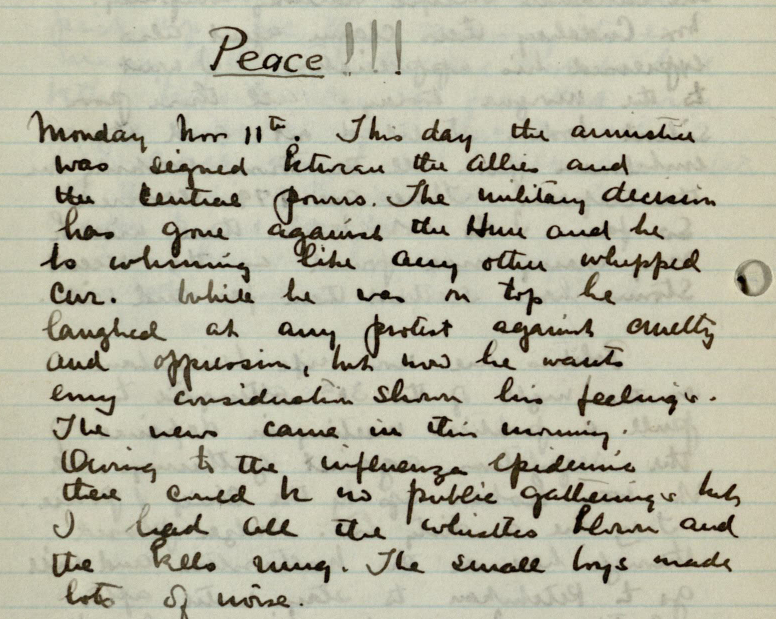 Peace!!!
Monday Nov 11th. This day the armistice
was signed between the Allies and
the Central powers. The military decision
has gone against the Hun and he
is whining like any other whipped
cur. While he was on top he
laughed at any protest against cruelty
and oppression, but now he wants
every consideration shown his feelings.
The news came in this morning.
Owing to the influenza epidemic
there could be no public gatherings but
I had all the whistles blown and
the bells rung. The small boys made
lots of noise.